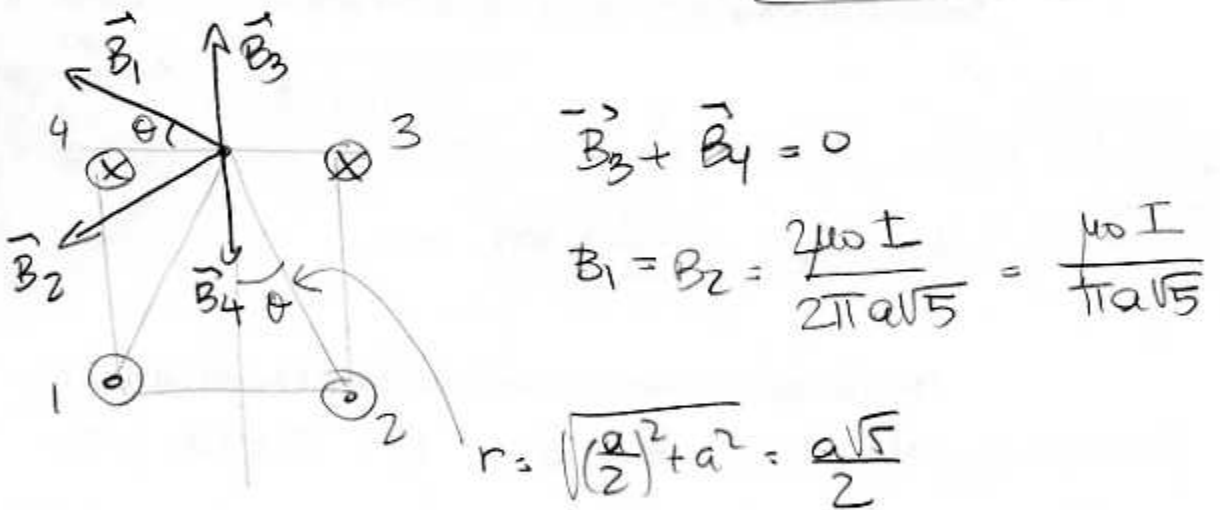 B⃗₁
B⃗₃
4
θ
3
B⃗₃ + B⃗₄ = 0
B⃗₂
B⃗₄
θ
B₁ = B₂ = 2μ₀I / 2πa√5 = μ₀I / πa√5
1
2
r = √((a/2)² + a²) = a√5 / 2